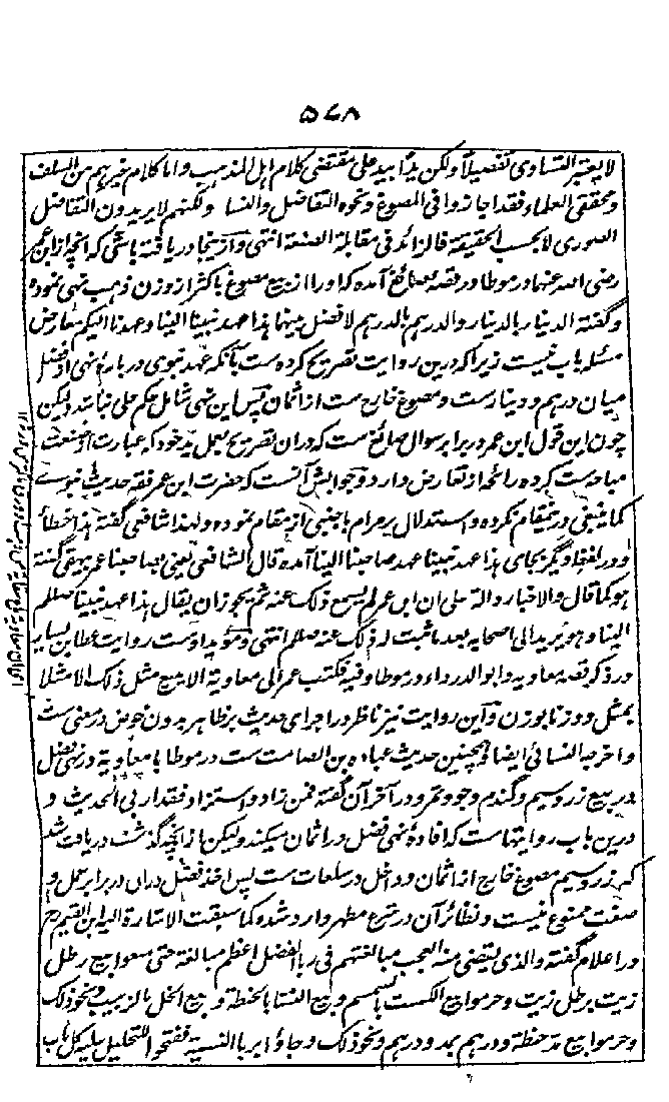 ۵۷۸
لا یعتبر التساوی تفضیلاً ولکن بذا بید علی مقتضی کلام اہل المذہب واما کلام غیرہم من السلف
ومحققی العلماء فقد اجازوا فی المصوغ ونحوہ التفاضل والنسا ولکنہم لا یریدون التفاضل
الصوری لا بحسب الحقیقة فالزائد فی مقابلة الصنعة انتہی وازینجا دریافتہ باشی کہ آنچہ از ابن عمر
رضی اللہ عنہما در موطا در قصۂ صائغ آمدہ کہ او را از بیع مصوغ باکثر از وزن ذہب نہی نمودہ
وگفتہ الدینار بالدینار والدرہم بالدرہم لا فضل بینہما ہذا عہد نبینا الینا وعہدنا الیکم معارض
مسئلہ باب نیست زیرا کہ درین روایت تصریح کردہ ست بآنکہ عہد نبوی دربارۂ نہی از فضل
میان درہم ودینارست ومصوغ خارج ست از اثمان پس این نہی شامل حکم حلی نباشد لیکن
چون این قول ابن عمر در برابر سوال صائغ ست کہ دران تصریح بعمل ید خود کہ عبارت از صنعت
مباحہ ست کردہ رائحہ از تعارض دارد وجوابش آنست کہ حضرت ابن عمر فقہ حدیث نبوی
کما ینبغی درینمقام نکردہ واستدلال بر مرام باجنبی از مقام نمودہ ولہذا شافعی گفتہ ہذا خطأ
ودر لفظ دیگر بجای ہذا عہد نبینا عہد صاحبنا الینا آمدہ قال الشافعی یعنی بصاحبنا عمر بیہقی گفتہ
ہو کما قال والاخبار دالة علی ان ابن عمر لم یسمع ذلک عنہ ثم یجوز ان یقال ہذا عہد نبینا صلعم
الینا وہو یرید الی اصحابہ بعد ما ثبت لہ ذلک عنہ صلعم انتہی ومؤید اوست روایت عطا بن یسار
در ذکر قصہ معاویہ وابو الدرداء در موطا وفیہ فکتب عمر الی معاویة الا یبیع مثل ذلک الا مثلا
بمثل ووزنا بوزن واین روایت نیز ناظر در اجرای حدیث بر ظاہر بدون خوض در معنی ست
واخرجہ النسائی ایضا وہمچنین حدیث عبادہ بن الصامت ست در موطا با معاویة در نہی فضل
در بیع زر وسیم وگندم وجو وتمر ودر آخر آن گفتہ فمن زاد واستزاد فقد اربی الحدیث و
درین باب روایتہاست کہ افادۂ نہی فضل در اثمان میکند ولیکن از آنچہ گذشت دریافت شد
کہ زر وسیم مصوغ خارج از اثمان وداخل در سلعات ست پس اخذ فضل دران در برابر عمل و
صنعت ممنوع نیست ونظائر آن در شرع مطہر وارد شدہ کما سبقت الاشارة الیہ ابن القیم رح
در اعلام گفتہ والذی یقتضی منہ العجب مبالغتہم فی ربا الفضل اعظم مبالغة حتی منعوا بیع رطل
زیت برطل زیت وحرموا بیع الکسب بالسمسم وبیع النشا بالحنطة وبیع الخل بالزبیب ونحو ذلک
وحرموا بیع مد حنطة ودرہم بمد ودرہم ونحو ذلک وجاؤا بربا النسیة ففتحوا للتحلیل علیہ کل باب